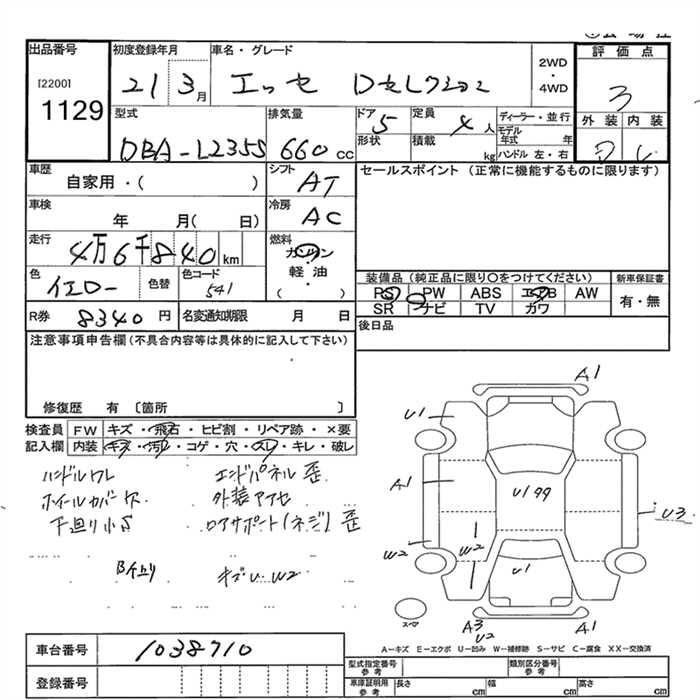 出品番号
[2200]
1129
初度登録年月
21 3月
車名・グレード
エッセ
2WD
・
4WD
評価点
3
外装 内装
型式
DBA-L235S
排気量
660cc
ドア
5
形状
定員
4人
積載
kg
ディーラー・並行
モデル年式 年
ハンドル 左・右
車歴
自家用・( )
シフト
AT
セールスポイント (正常に機能するものに限ります)
車検
年 月( 日)
冷房
AC
走行
4万6千840km
燃料
ガソリン
軽油
( ・ )
色
イエロー
色替
色コード
541
装備品(純正品に限り○をつけてください)
PS PW ABS エアB AW
SR ナビ TV カワ
新車保証書
有・無
R券
8340円
名変通知期限 月 日
後日品
注意事項申告欄(不具合内容等は具体的に記入して下さい)
修復歴 有 〔箇所 〕
検査員
記入欄
FW キズ・飛石・ヒビ割・リペア跡・×要
内装 キズ・汚れ・コゲ・穴・スレ・キレ・破レ
ハンドルワレ
エンドパネル歪
ホイールカバー欠
下廻り小S
ロアサポート(ネジ)歪
キズU W2
A1
U1
A1
U3
W2
W2
U1
A3
U2
A1
スペア
A-キズ E-エクボ U-凹み W-補修跡 S-サビ C-腐食 XX-交換済
車台番号
1038710
登録番号
型式指定番号
参考
類別区分番号
参考
車庫証明用
参考
長さ cm
幅 cm
高さ cm